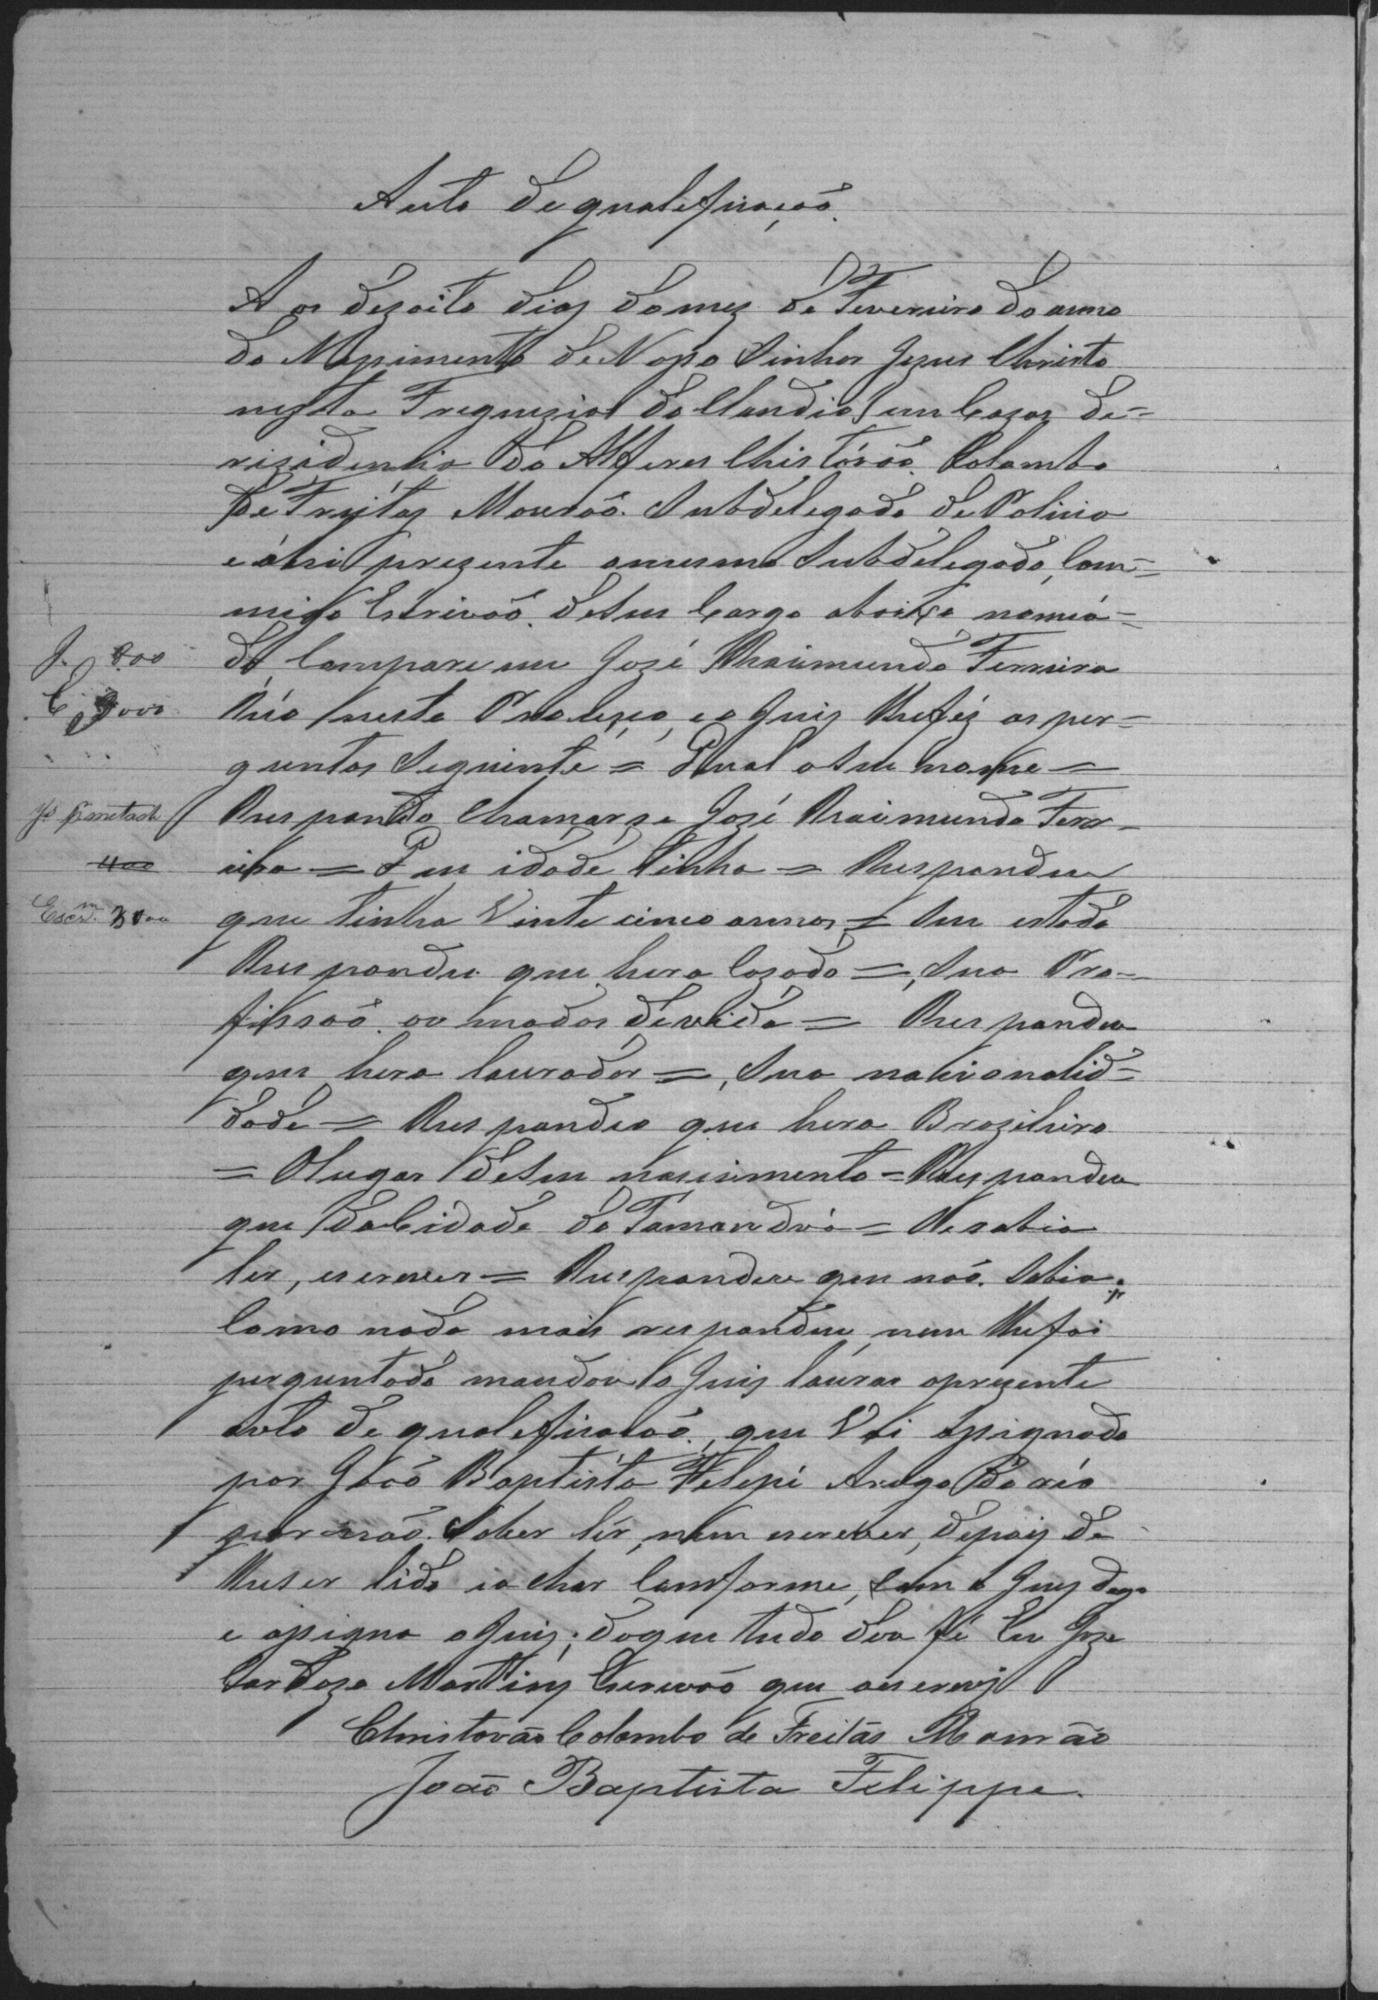 Auto de qualeficação.
Aos dezoito dias do mez de Fevereiro do anno
do Nascimento de Nosso Sinhor Jezus Christo
nesta Freguezia do Claudio em Cazas de=
rizidencia do Alferes Christóvão Colombo
de Freytas Mourão Subdelegado de Policia
e áhi prezente o mesmo Subdelegado, Com=
migo Escrivão de seu Cargo abaixo nomiá=
do, Compareceu José Raimundo Ferreira
Réo neste Proceço, e o Juis lhe féz as per=
guntas Seguinte = Qual o seu nome =
Respondeo chamarse José Raimundo Ferr-
eira = Que idade tinha = Respondeu
que tinha Vinte cinco annos = Seu estado
Respondeu que hera Cazado =, Sua Pro-
fissão ou modos de vida = Respondeu
que hera laurador =, Sua nacionalid=
dade = Respondeo que hera Brazileiro
= O lugar de seu nascimento = Respondeu
que da Cidade do Tamanduá = Se sabia
ler, escrever = Respondeu que não Sabia,
Como nada mais respondeu, nem lhe foi
perguntado mandou o Juis láurar o prezente
auto de qualeficação, que Vai assignado
por João Baptista Felepe Arogo do réo
por não Saber lér, nem escrever, depois de
lhe ser lido e achar Comforme, Com o Juis
e assigna o Juis; do que tudo dou fé Eu Joze
Cardozo Martins Escrivão que o escrevi
Christovão Colombo de Freitas Mourão
João Baptista Felippe.
J. 200
E. 3000
400
Escm. 3000